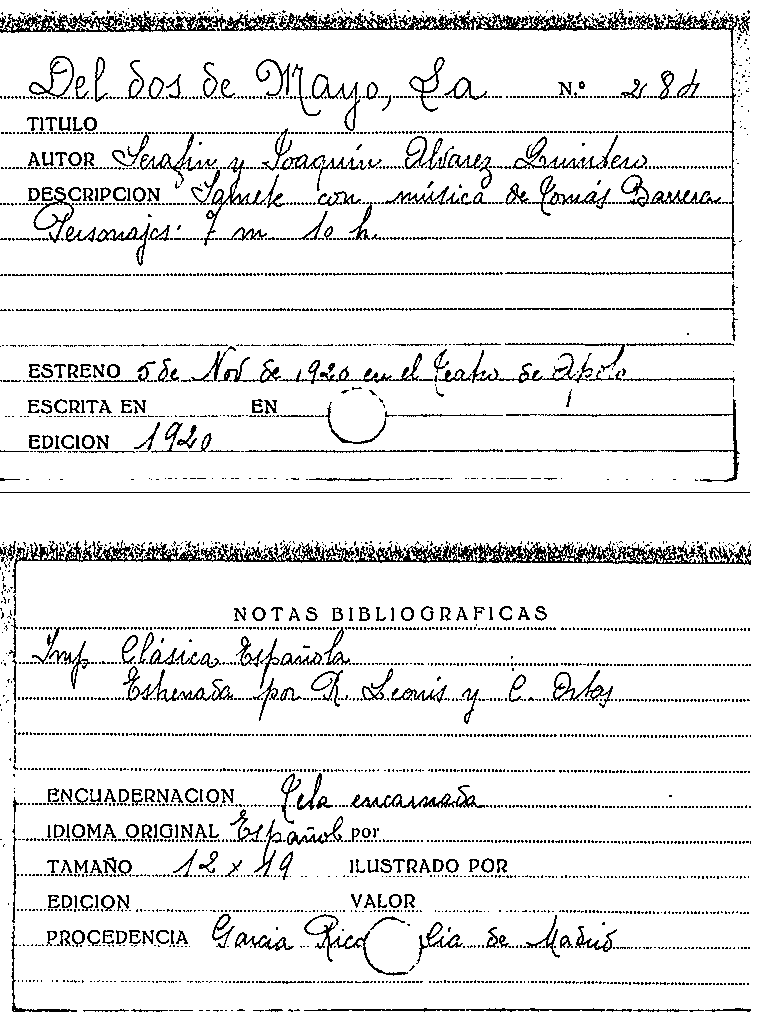 Del dos de Mayo, La N.º 284
TITULO
AUTOR Serafin y Joaquín Alvarez Quintero
DESCRIPCION Sainete con música de Tomás Barrera
Personajes: 7 m 10 h.
ESTRENO 5 de Nov de 1920 en el Teatro de Apolo
ESCRITA EN EN
EDICION 1920
NOTAS BIBLIOGRAFICAS
Imp Clásica Española
Estrenada por R. Leonis y C. Ortas
ENCUADERNACION Tela encarnada
IDIOMA ORIGINAL Español por
TAMAÑO 12 x 19 ILUSTRADO POR
EDICION VALOR
PROCEDENCIA Garcia Rico Cia de Madrid